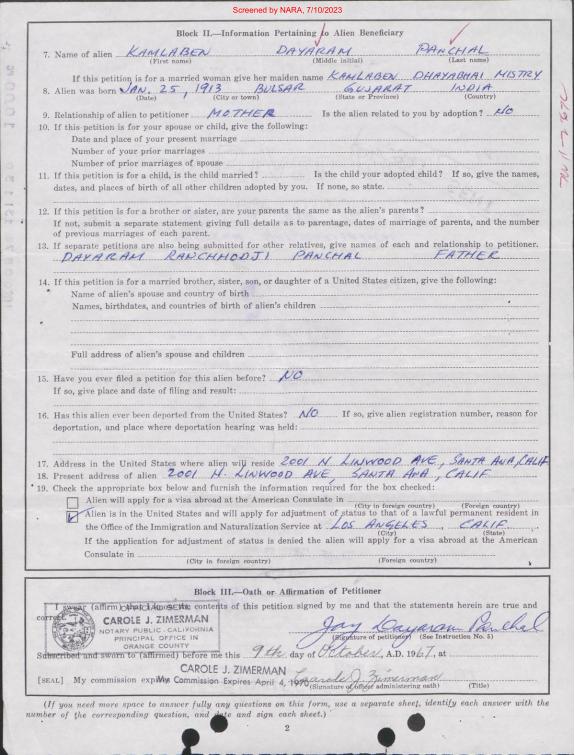 Screened by NARA, 7/10/2023
Block II.—Information Pertaining to Alien Beneficiary
7. Name of alien KAMLABEN DAYARAM PANCHAL
(First name) (Middle initial) (Last name)
If this petition is for a married woman give her maiden name KAMLABEN DHAYABHAI MISTRY
8. Alien was born JAN. 25, 1913 BULSAR GUJARAT INDIA
(Date) (City or town) (State or Province) (Country)
9. Relationship of alien to petitioner MOTHER Is the alien related to you by adoption? NO
10. If this petition is for your spouse or child, give the following:
Date and place of your present marriage
Number of your prior marriages
Number of prior marriages of spouse
11. If this petition is for a child, is the child married? Is the child your adopted child? If so, give the names,
dates, and places of birth of all other children adopted by you. If none, so state.
12. If this petition is for a brother or sister, are your parents the same as the alien's parents?
If not, submit a separate statement giving full details as to parentage, dates of marriage of parents, and the number
of previous marriages of each parent.
13. If separate petitions are also being submitted for other relatives, give names of each and relationship to petitioner.
DAYARAM RANCHHODJI PANCHAL FATHER
14. If this petition is for a married brother, sister, son, or daughter of a United States citizen, give the following:
Name of alien's spouse and country of birth
Names, birthdates, and countries of birth of alien's children
Full address of alien's spouse and children
15. Have you ever filed a petition for this alien before? NO
If so, give place and date of filing and result:
16. Has this alien ever been deported from the United States? NO If so, give alien registration number, reason for
deportation, and place where deportation hearing was held:
17. Address in the United States where alien will reside 2001 N LINWOOD AVE, SANTA ANA, CALIF
18. Present address of alien 2001 N. LINWOOD AVE, SANTA ANA, CALIF
19. Check the appropriate box below and furnish the information required for the box checked:
Alien will apply for a visa abroad at the American Consulate in
(City in foreign country) (Foreign country)
Alien is in the United States and will apply for adjustment of status to that of a lawful permanent resident in
the Office of the Immigration and Naturalization Service at LOS ANGELES, CALIF.
(City) (State)
If the application for adjustment of status is denied the alien will apply for a visa abroad at the American
Consulate in
(City in foreign country) (Foreign country)
Block III.—Oath or Affirmation of Petitioner
I swear (affirm) that I know the contents of this petition signed by me and that the statements herein are true and
correct.
OFFICIAL SEAL
CAROLE J. ZIMERMAN
NOTARY PUBLIC - CALIFORNIA
PRINCIPAL OFFICE IN
ORANGE COUNTY
Jay Dayaram Panchal
(Signature of petitioner) (See Instruction No. 5)
Subscribed and sworn to (affirmed) before me this 9th day of October, A.D. 1967, at
CAROLE J. ZIMERMAN
[SEAL] My commission expires My Commission Expires April 4, 1970 Carole J. Zimerman
(Signature of officer administering oath) (Title)
(If you need more space to answer fully any questions on this form, use a separate sheet, identify each answer with the
number of the corresponding question, and date and sign each sheet.)
2